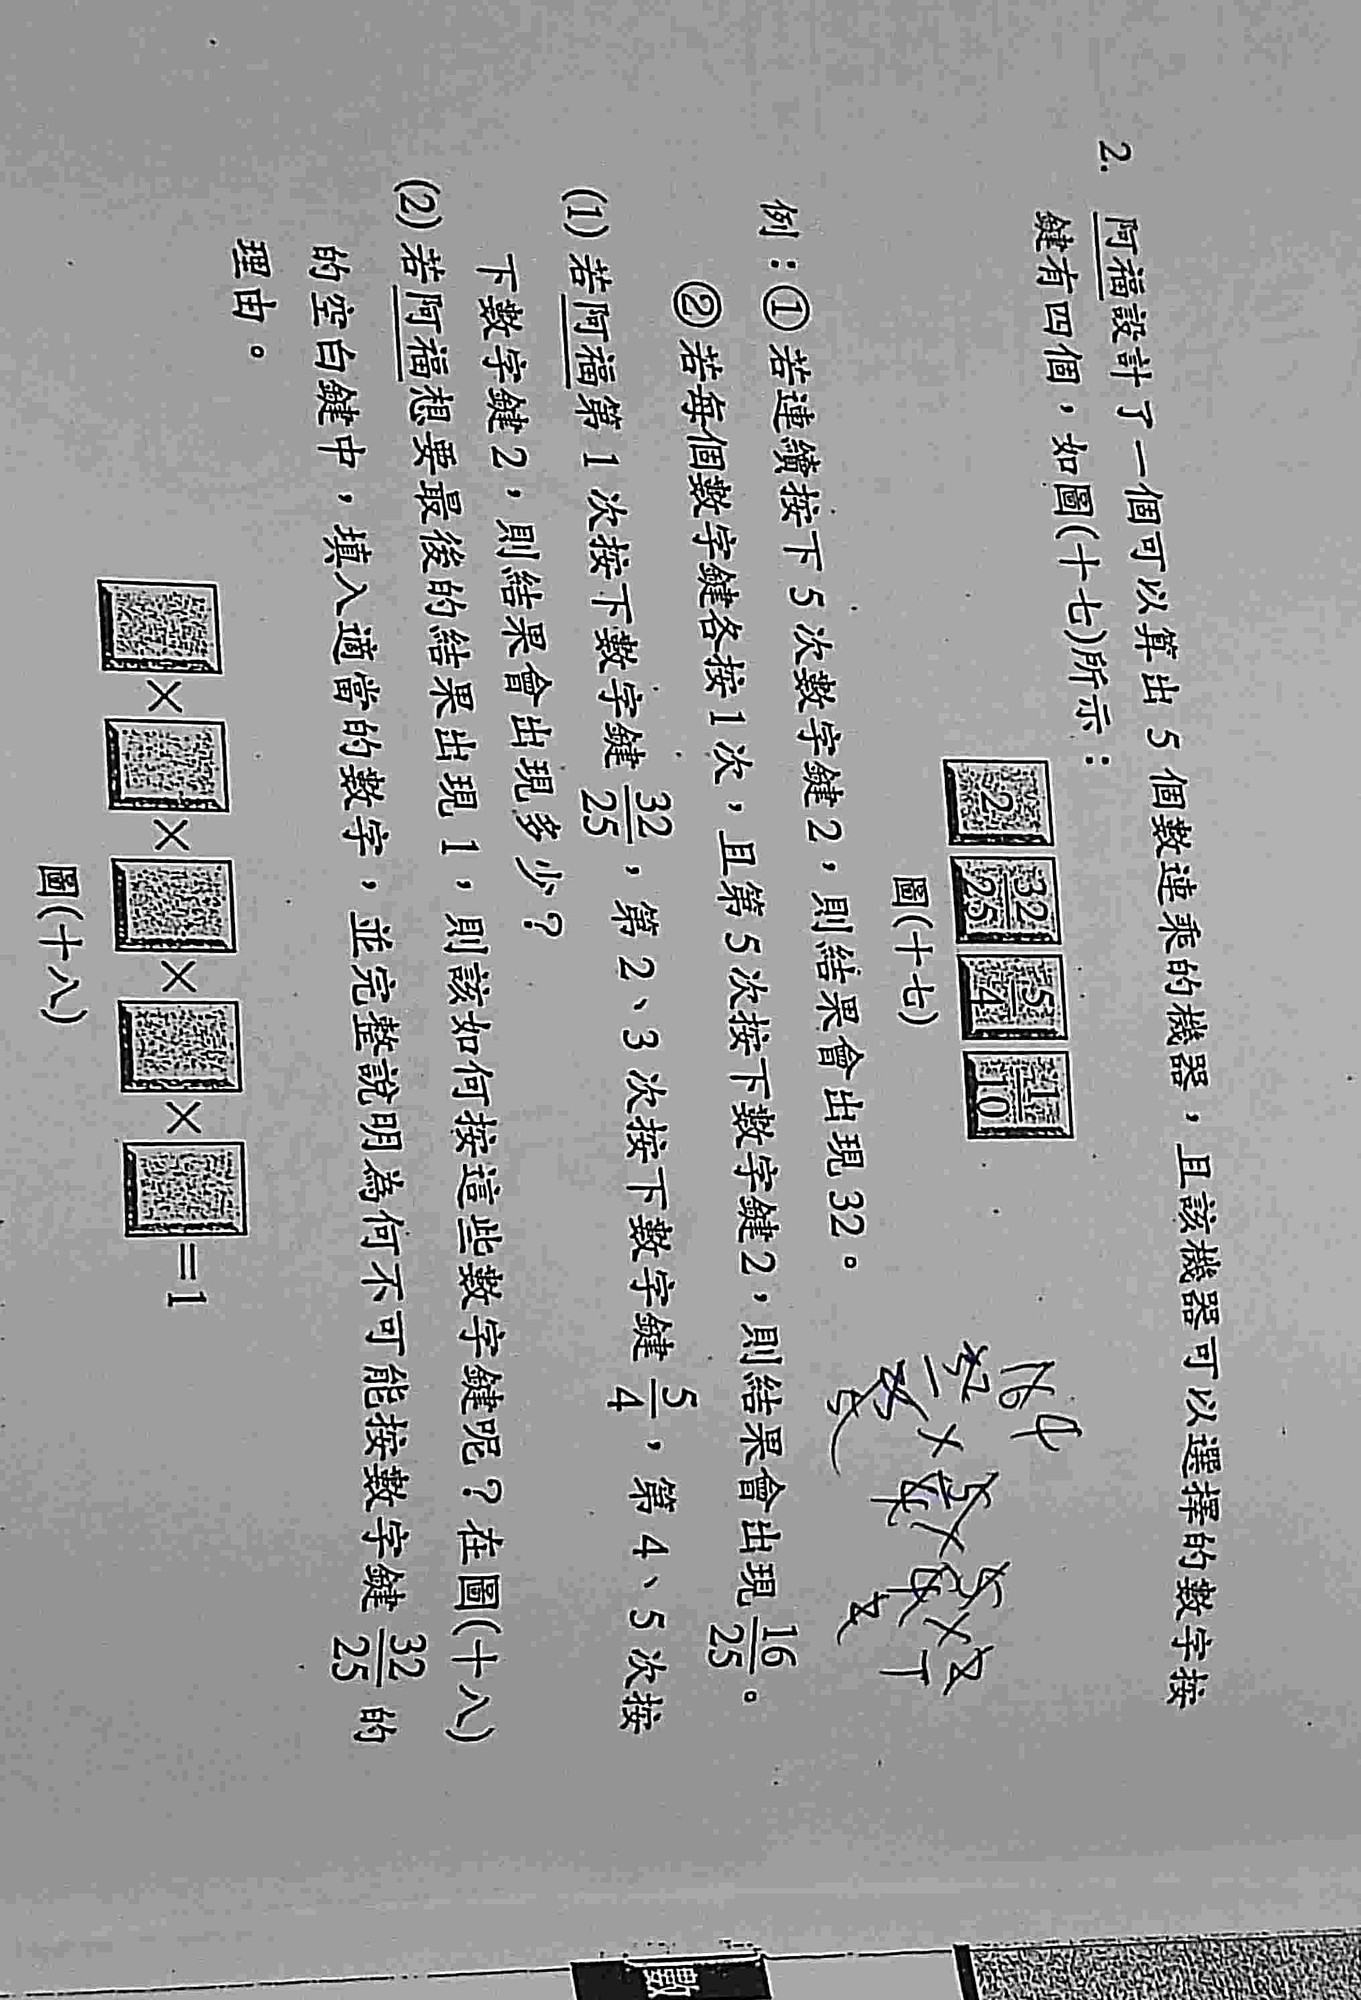 2. 阿福設計了一個可以算出 5 個數連乘的機器，且該機器可以選擇的數字按
鍵有四個，如圖(十七)所示：
2 32/25 5/4 1/10
圖(十七)
例：① 若連續按下 5 次數字鍵 2，則結果會出現 32。
② 若每個數字鍵各按 1 次，且第 5 次按下數字鍵 2，則結果會出現 16/25。
(1) 若阿福第 1 次按下數字鍵 32/25，第 2、3 次按下數字鍵 5/4，第 4、5 次按
下數字鍵 2，則結果會出現多少？
(2) 若阿福想要最後的結果出現 1，則該如何按這些數字鍵呢？在圖(十八)
的空白鍵中，填入適當的數字，並完整說明為何不可能按數字鍵 32/25 的
理由。
× × × × =1
圖(十八)
數